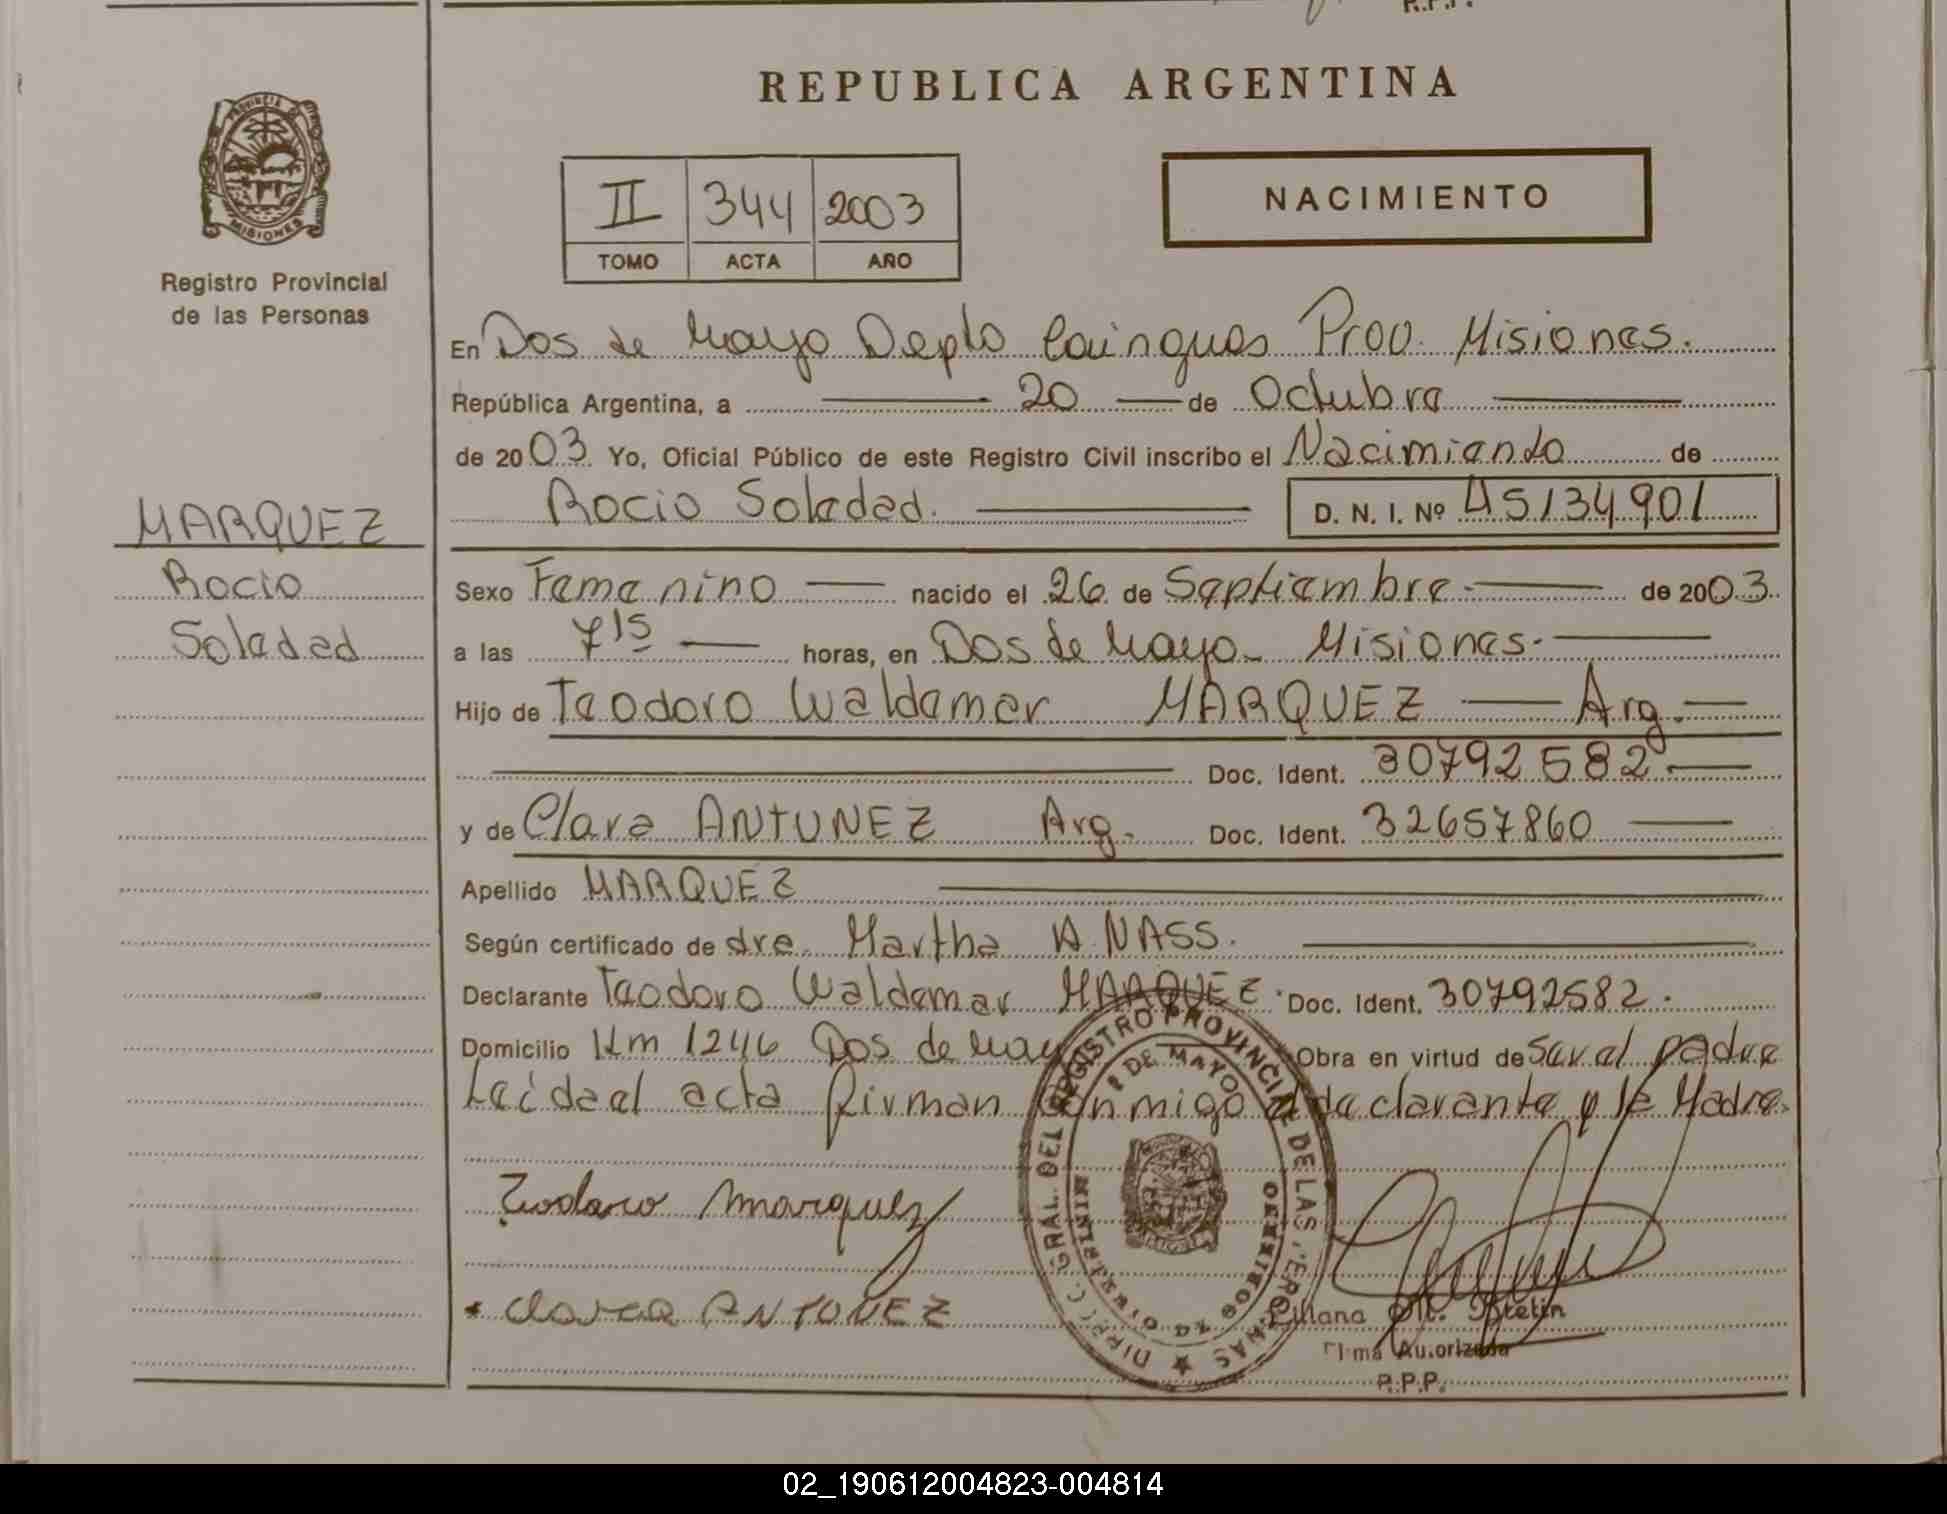 R.P.P.
REPUBLICA ARGENTINA
PROVINCIA DE
MISIONES
Registro Provincial
de las Personas
II 344 2003
TOMO ACTA AÑO
NACIMIENTO
En Dos de Mayo Depto Cainguas Prov. Misiones.
República Argentina, a 20 de Octubre
de 2003 Yo, Oficial Público de este Registro Civil inscribo el Nacimiento de
Rocio Soledad. D. N. I. Nº 45134901
MARQUEZ
Rocio
Soledad
Sexo Femenino nacido el 26 de Septiembre de 2003
a las 7 15 horas, en Dos de Mayo - Misiones -
Hijo de Teodoro Waldemar MARQUEZ Arg.
Doc. Ident. 30792582
y de Clara ANTUNEZ Arg. Doc. Ident. 32657860
Apellido MARQUEZ
Según certificado de dra. Martha A. NASS.
Declarante Teodoro Waldemar MARQUEZ. Doc. Ident. 30792582.
Domicilio Km 1246 Dos de Mayo Obra en virtud de ser el padre
Leida el acta firman conmigo el declarante y la Madre.
Teodoro Marquez
Clara ANTUNEZ
DIRECC. GRAL. DEL REGISTRO PROVINCIAL DE LAS PERSONAS
2 DE MAYO
MINISTERIO DE GOBIERNO
Liliana M. Stetin
Firma Autorizada
R.P.P.
02_190612004823-004814